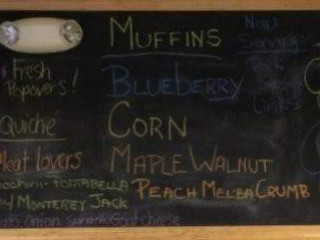 Fresh
Popovers!
Quiche
Meat lovers
Portabella
w/ Monterey Jack
Onion Goat cheese
Muffins
Blueberry
Corn
Maple Walnut
Peach Melba Crumb
Now
Serving
Pork
Sausage
Links